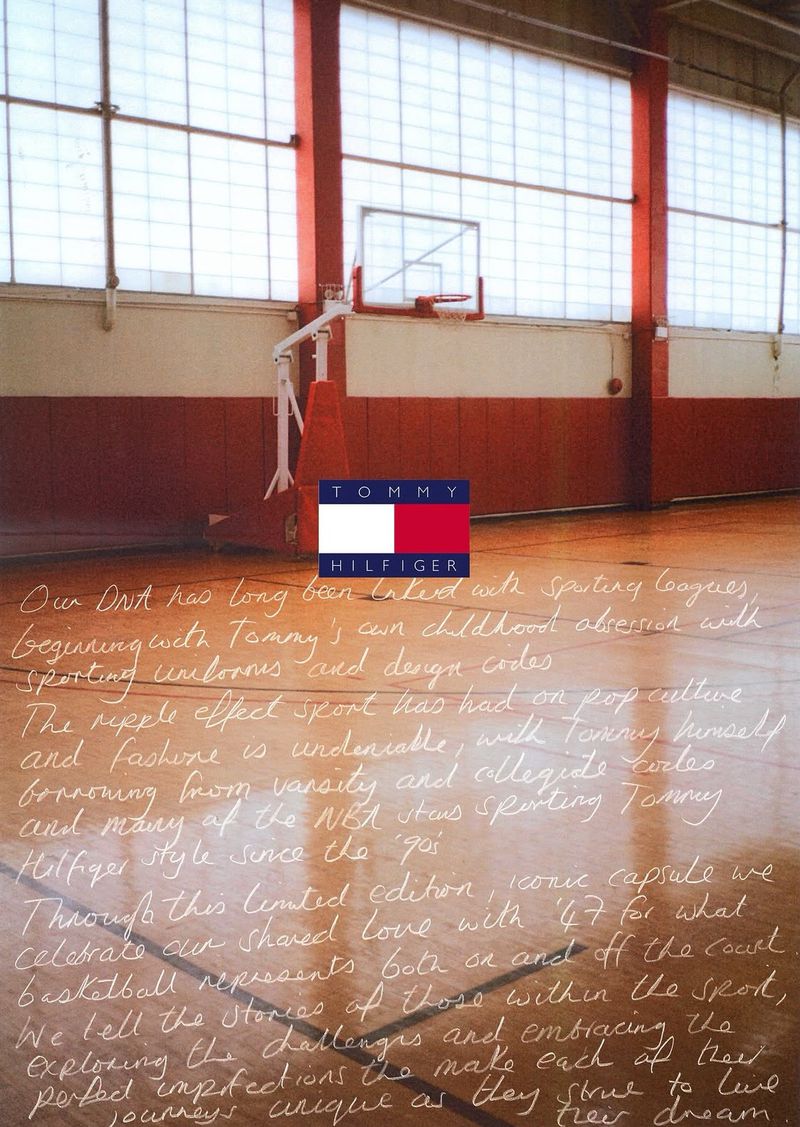 TOMMY
HILFIGER
Our DNA has long been linked with sporting leagues,
beginning with Tommy's own childhood obsession with
sporting uniforms and design codes
The ripple effect sport has had on pop culture
and fashion is undeniable, with Tommy himself
borrowing from varsity and collegiate codes
and many of the NBA stars sporting Tommy
Hilfiger style since the '90s
Through this limited edition, iconic capsule we
celebrate our shared love with '47 for what
basketball represents both on and off the court.
We tell the stories of those within the sport,
exploring the challenges and embracing the
perfect imperfections the make each of their
journeys unique as they strive to live
their dream.